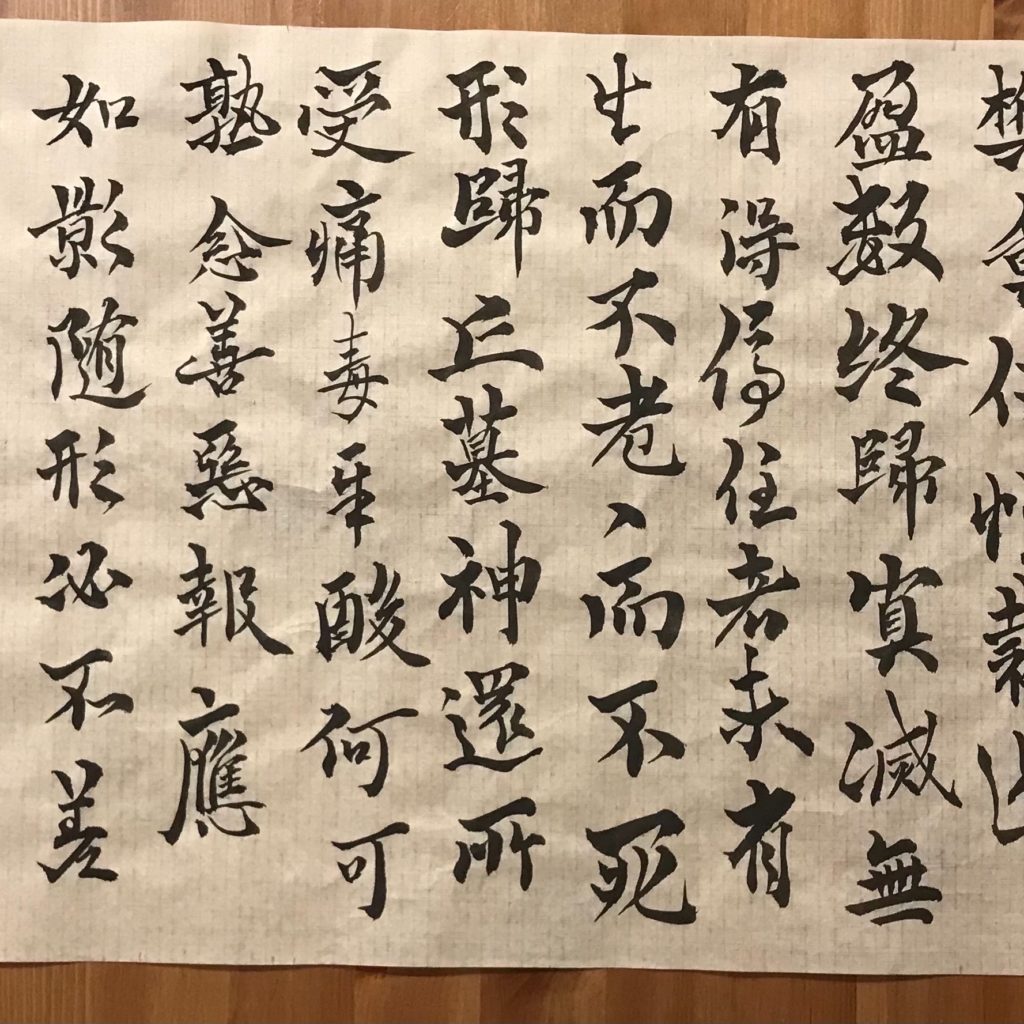 盈數終歸冥滅無
有得停住者未有
生而不老丶而不死
形歸丘墓神還所
受痛毒辛酸何可
熟念善惡報應
如影随形必不差